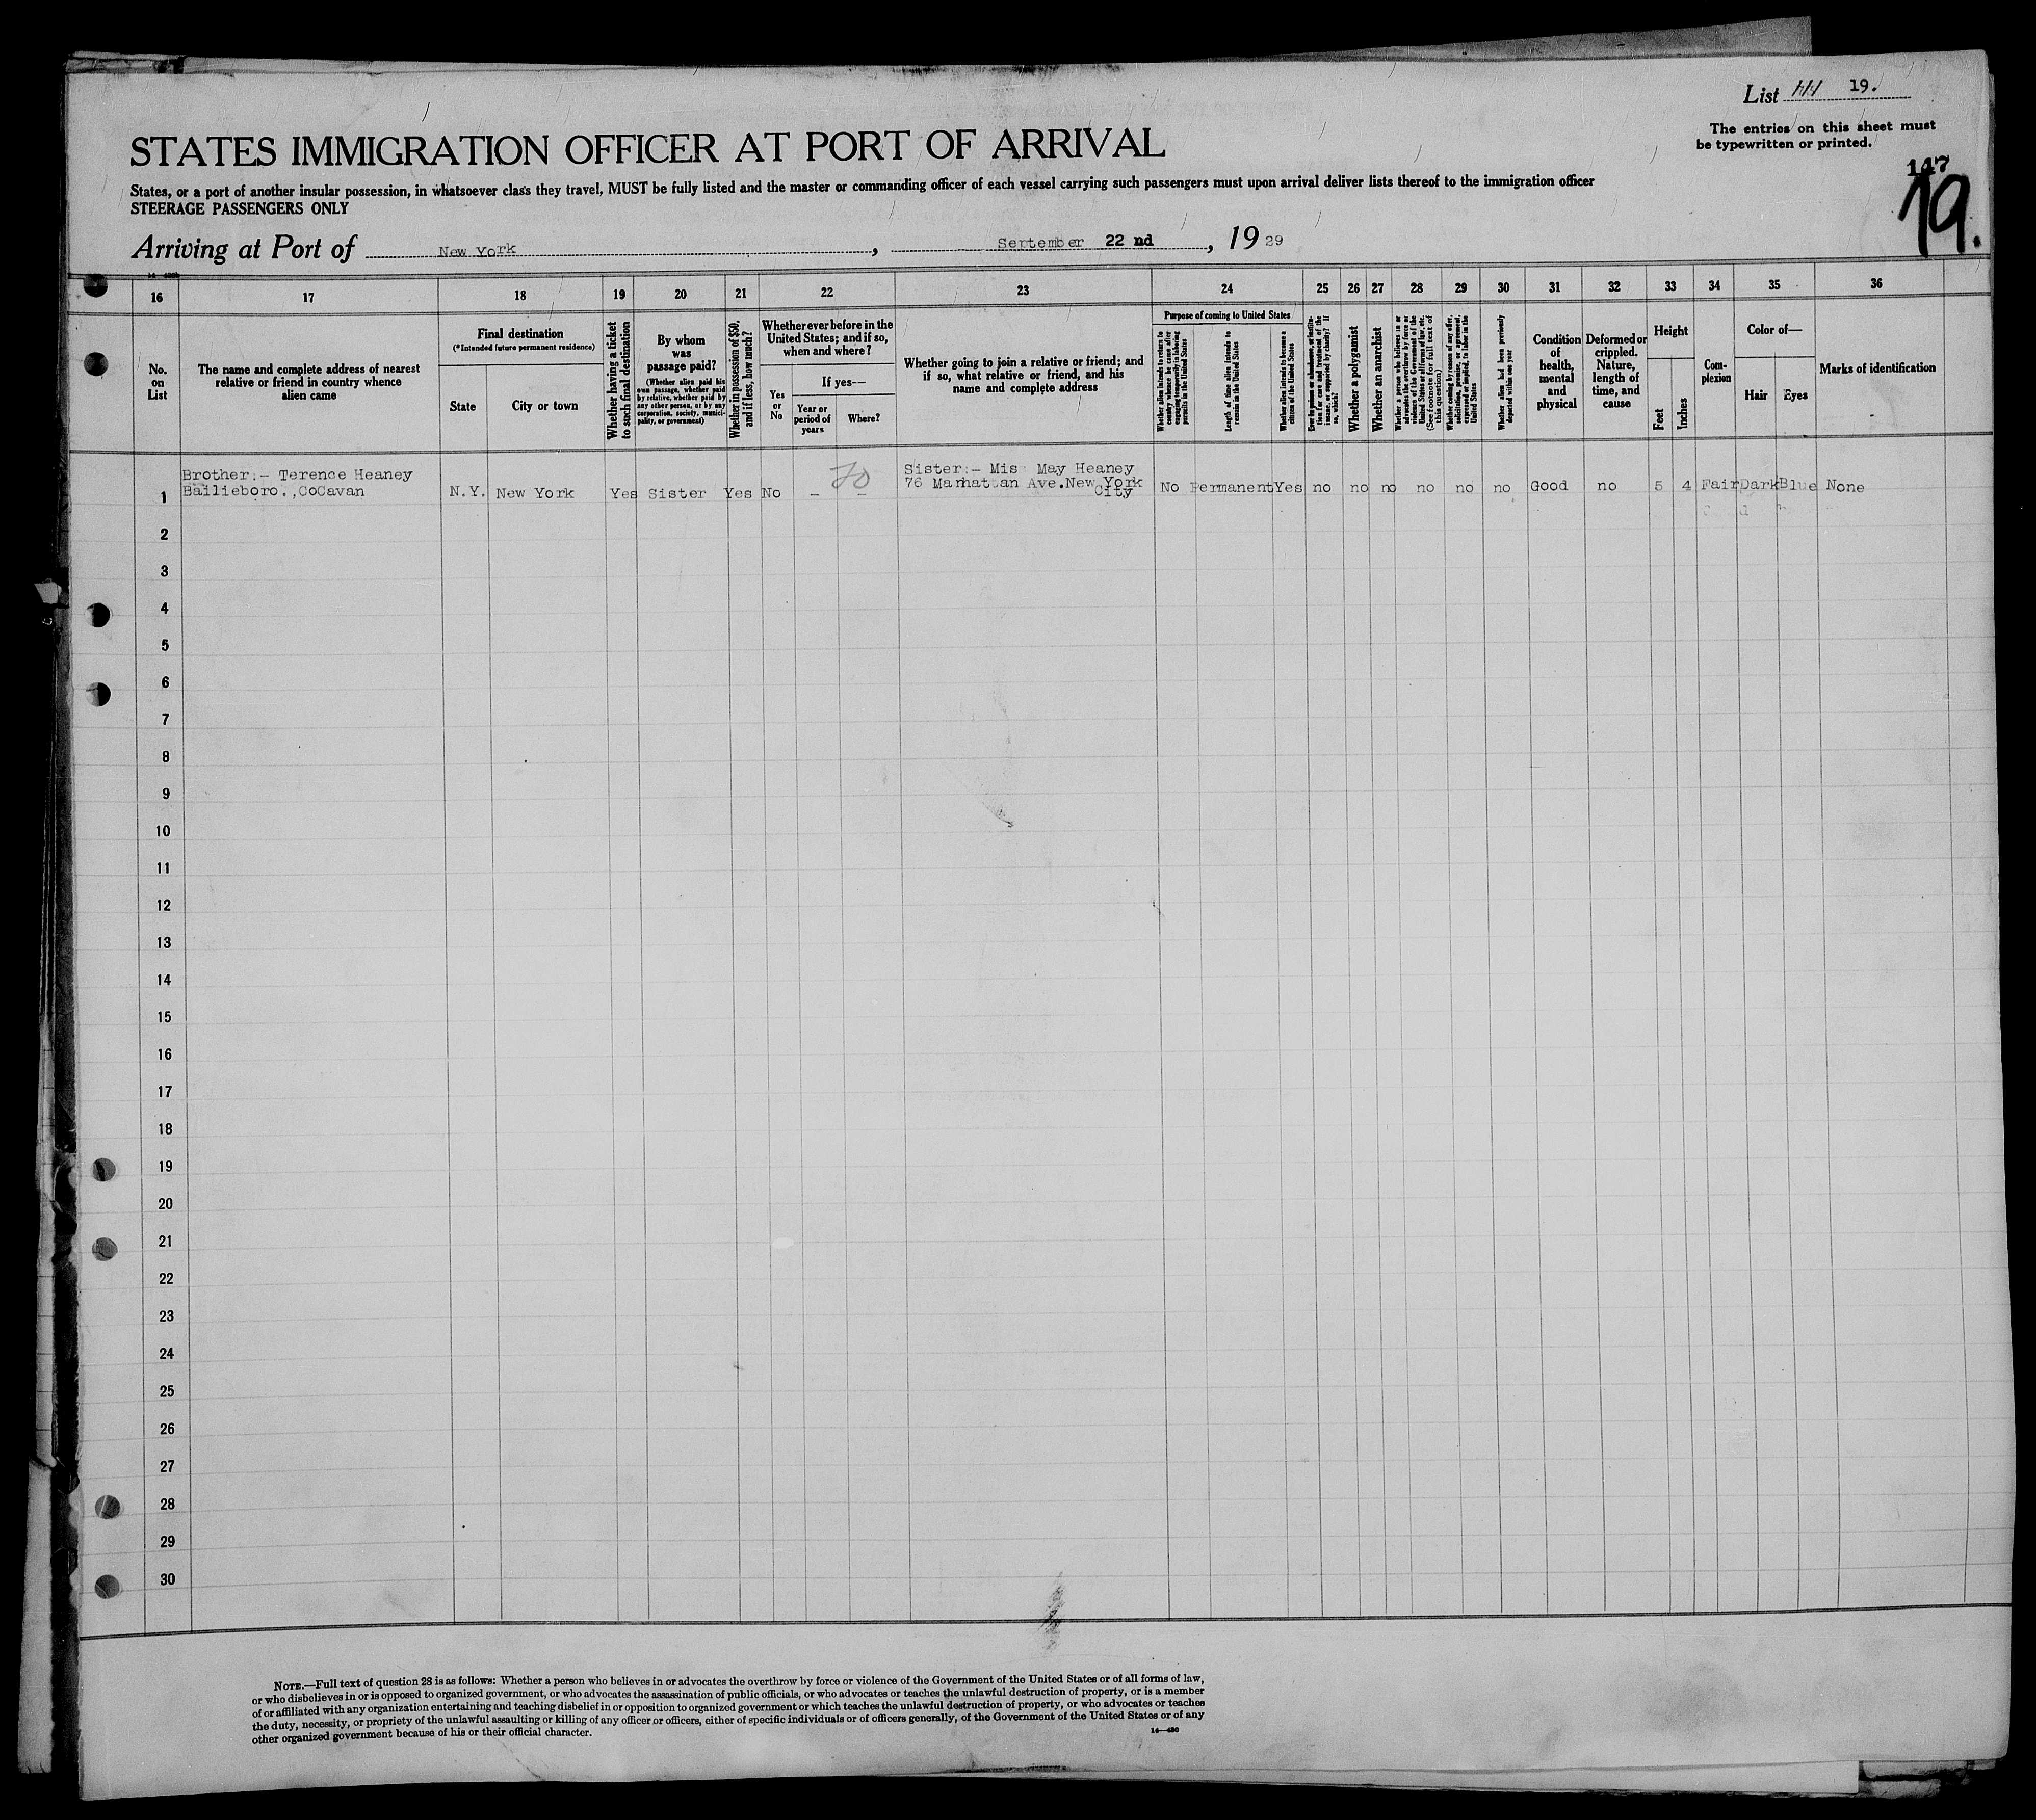 List 19.
The entries on this sheet must
be typewritten or printed.
147
19.
STATES IMMIGRATION OFFICER AT PORT OF ARRIVAL
States, or a port of another insular possession, in whatsoever class they travel, MUST be fully listed and the master or commanding officer of each vessel carrying such passengers must upon arrival deliver lists thereof to the immigration officer
STEERAGE PASSENGERS ONLY
Arriving at Port of New York, September 22 nd, 19 29
16 17 18 19 20 21 22 23 24 25 26 27 28 29 30 31 32 33 34 35 36
No.
on
List
The name and complete address of nearest
relative or friend in country whence
alien came
Final destination
(*Intended future permanent residence)
State
City or town
Whether having a ticket
to such final destination
By whom
was
passage paid?
(Whether alien paid his
own passage, whether paid
by relative, whether paid by
any other person, or by any
corporation, society, munici-
pality, or government)
Whether in possession of $50,
and if less, how much?
Whether ever before in the
United States; and if so,
when and where?
Yes
or
No
If yes—
Year or
period of
years
Where?
Whether going to join a relative or friend; and
if so, what relative or friend, and his
name and complete address
Purpose of coming to United States
Whether alien intends to return to
country whence he came after
engaging temporarily in laboring
pursuits in the United States
Length of time alien intends to
remain in the United States
Whether alien intends to become a
citizen of the United States
Ever in prison or almshouse, or institu-
tion for care and treatment of the
insane, or supported by charity? If
so, which?
Whether a polygamist
Whether an anarchist
Whether a person who believes in or
advocates the overthrow by force or
violence of the Government of the
United States or all forms of law, etc.
(See footnote for full text of
this question)
Whether coming by reason of any offer,
solicitation, promise, or agreement,
expressed or implied, to labor in the
United States
Whether alien had been previously
deported within one year
Condition
of
health,
mental
and
physical
Deformed or
crippled.
Nature,
length of
time, and
cause
Height
Feet
Inches
Com-
plexion
Color of—
Hair
Eyes
Marks of identification
1 Brother:- Terence Heaney
Bailieboro.,CoCavan
N.Y. New York Yes Sister Yes No – –
Sister:- Mis May Heaney
76 Manhattan Ave.New York
City
No Permanent Yes no no no no no no Good no 5 4 Fair Dark Blue None
2
3
4
5
6
7
8
9
10
11
12
13
14
15
16
17
18
19
20
21
22
23
24
25
26
27
28
29
30
NOTE.—Full text of question 28 is as follows: Whether a person who believes in or advocates the overthrow by force or violence of the Government of the United States or of all forms of law,
or who disbelieves in or is opposed to organized government, or who advocates the assassination of public officials, or who advocates or teaches the unlawful destruction of property, or is a member
of or affiliated with any organization entertaining and teaching disbelief in or opposition to organized government or which teaches the unlawful destruction of property, or who advocates or teaches
the duty, necessity, or propriety of the unlawful assaulting or killing of any officer or officers, either of specific individuals or of officers generally, of the Government of the United States or of any
other organized government because of his or their official character.
14—480